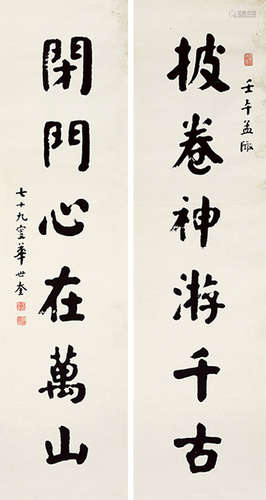 披卷神游千古
壬午孟陬
閉門心在萬山
七十九叟華世奎